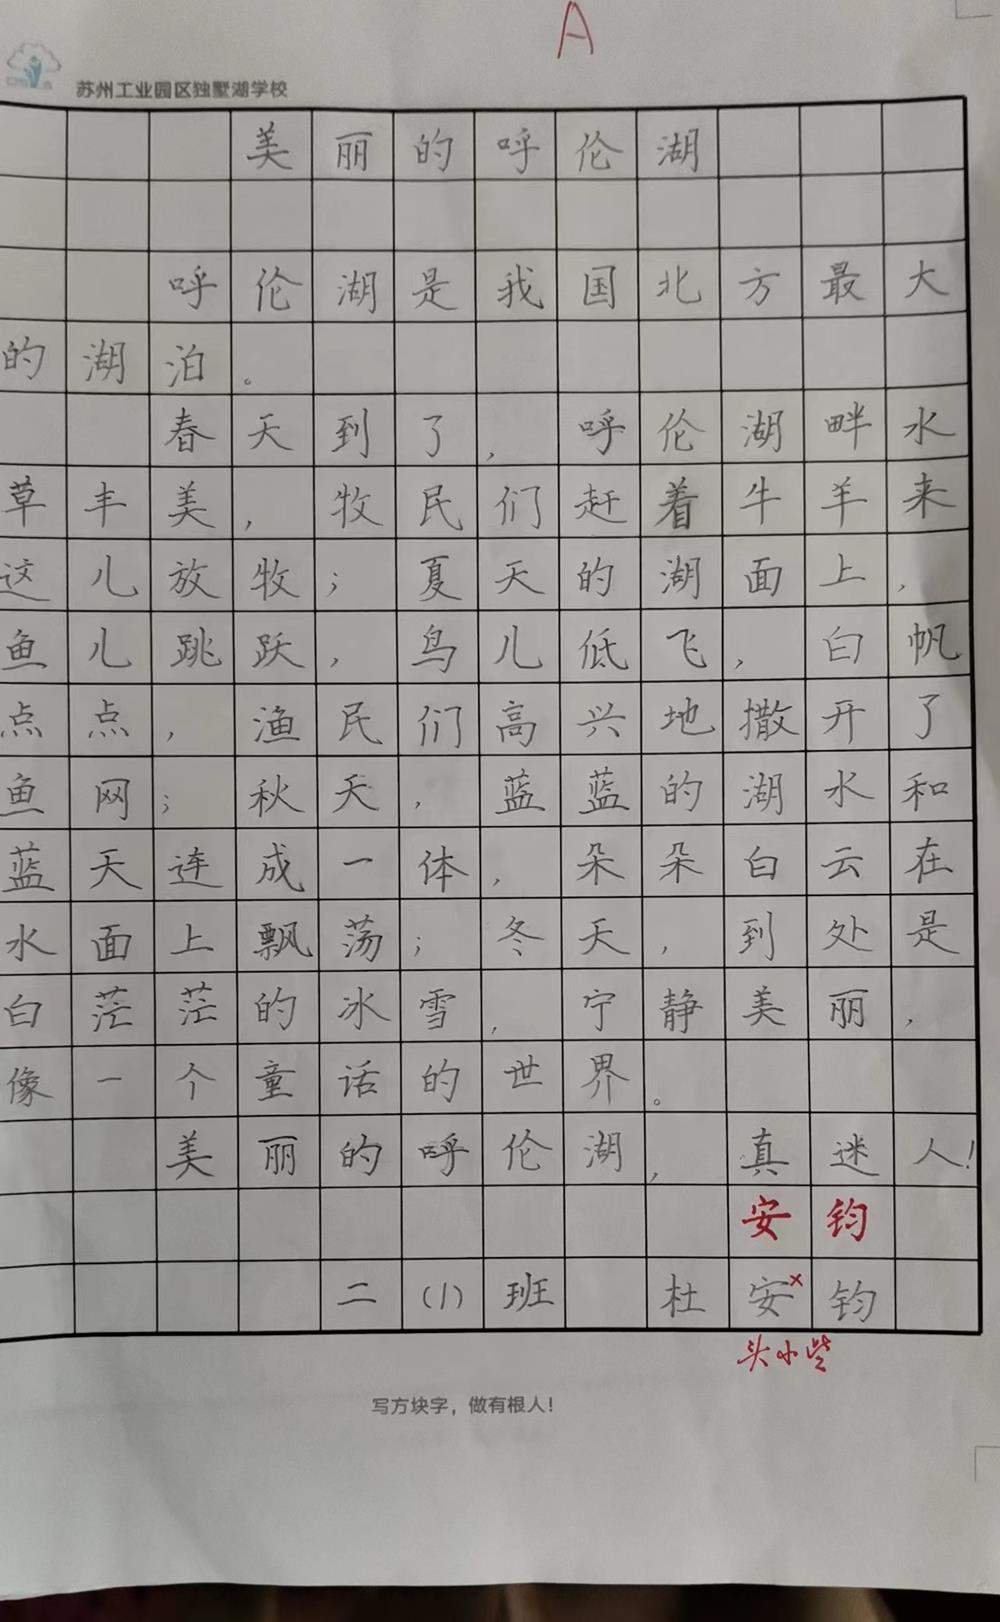 A
苏州工业园区独墅湖学校
美丽的呼伦湖
呼伦湖是我国北方最大
的湖泊。
春天到了，呼伦湖畔水
草丰美，牧民们赶着牛羊来
这儿放牧；夏天的湖面上，
鱼儿跳跃，鸟儿低飞，白帆
点点，渔民们高兴地撒开了
鱼网；秋天，蓝蓝的湖水和
蓝天连成一体，朵朵白云在
水面上飘荡；冬天，到处是
白茫茫的冰雪，宁静美丽，
像一个童话的世界。
美丽的呼伦湖，真迷人！
安钧
二(1)班 杜安钧
头小些
写方块字，做有根人！